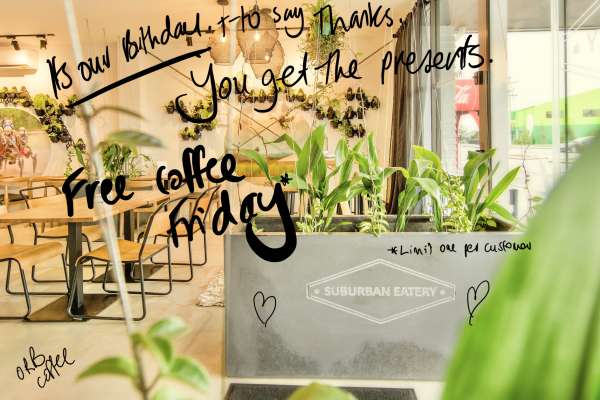 It's our Birthday. + to say Thanks.
You get the presents.
Free Coffee
Friday*
*Limit one per customer
SUBURBAN EATERY
ORB
coffee